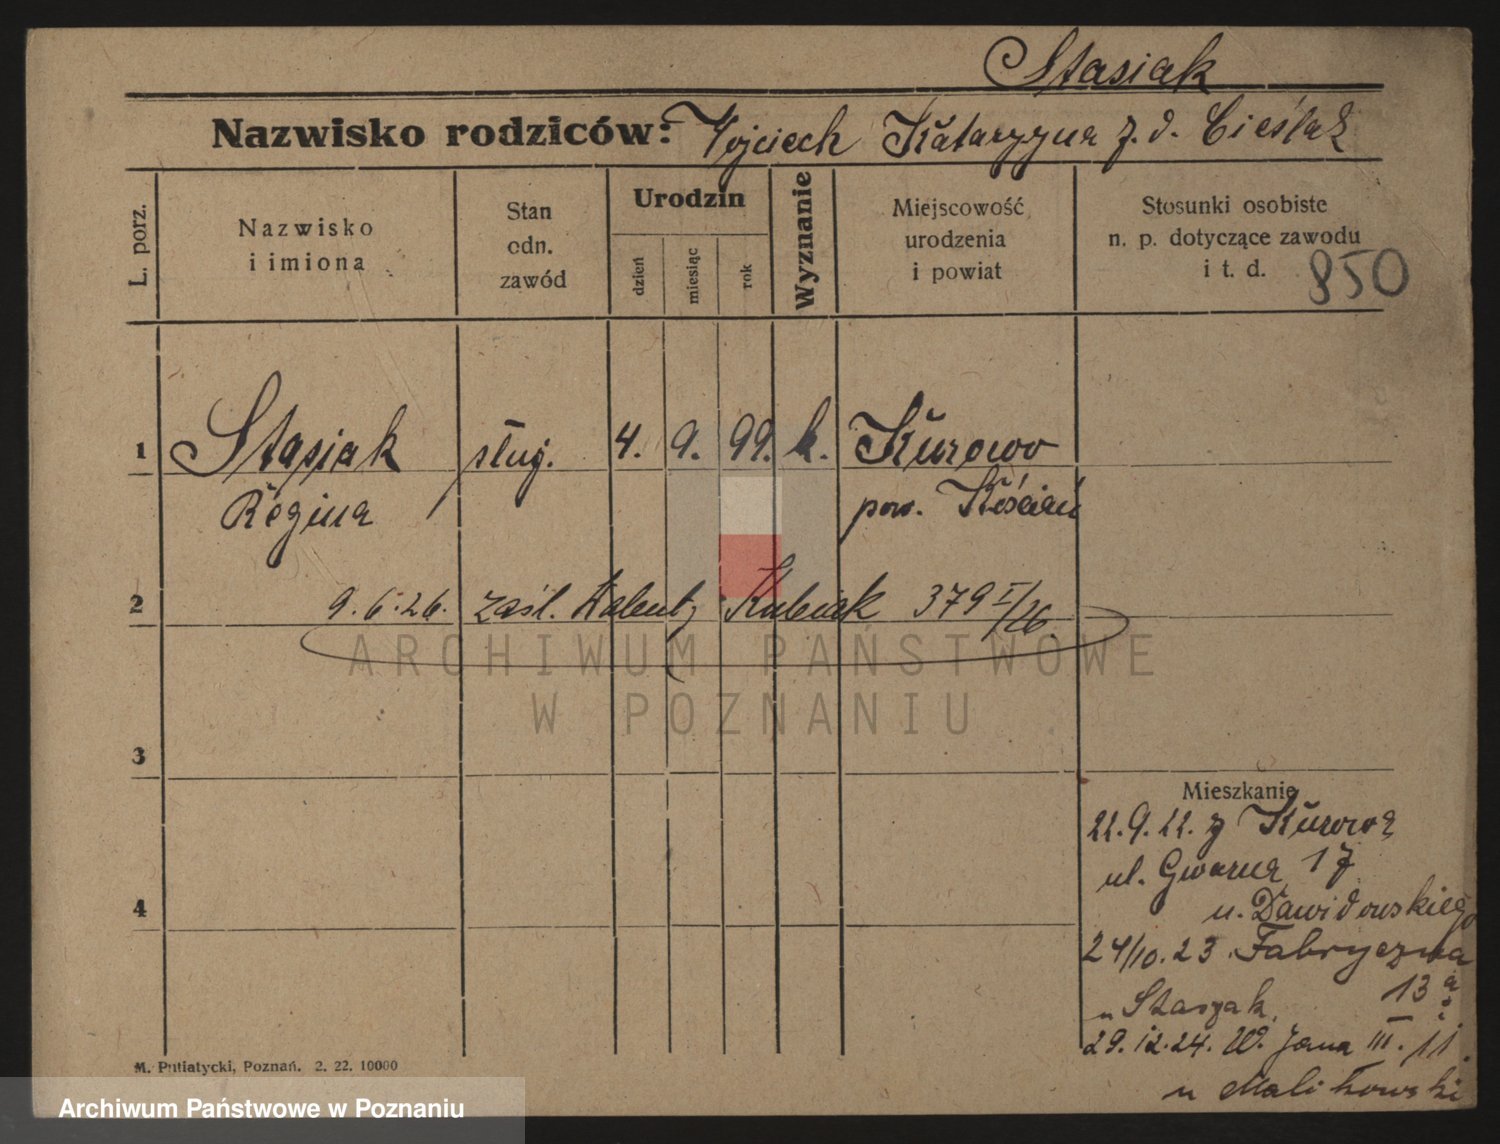 Stasiak
Nazwisko rodziców: Wojciech Katarzyna z. d. Cieślak
L. porz.
Nazwisko
i imiona
Stan
odn.
zawód
Urodzin
dzień
miesiąc
rok
Wyznanie
Miejscowość
urodzenia
i powiat
Stosunki osobiste
n. p. dotyczące zawodu
i t. d. 850
1 Stasiak służ. 4. 9. 99. k. Kurowo
Regina pow. Kościan
2 9.6.26. zaśl. Walenty Kubiak 379 I/26.
ARCHIWUM PAŃSTWOWE
W POZNANIU
3
Mieszkanie
22.9.22. z Kurowa
ul. Gwarna 17
u. Dawidowskiego
4
24/10.23 Fabryczna
13a
u Staszak
29.12.24. W. Jana III. 11.
u Malikowski
M. Putiatycki, Poznań. 2. 22. 10000
Archiwum Państwowe w Poznaniu